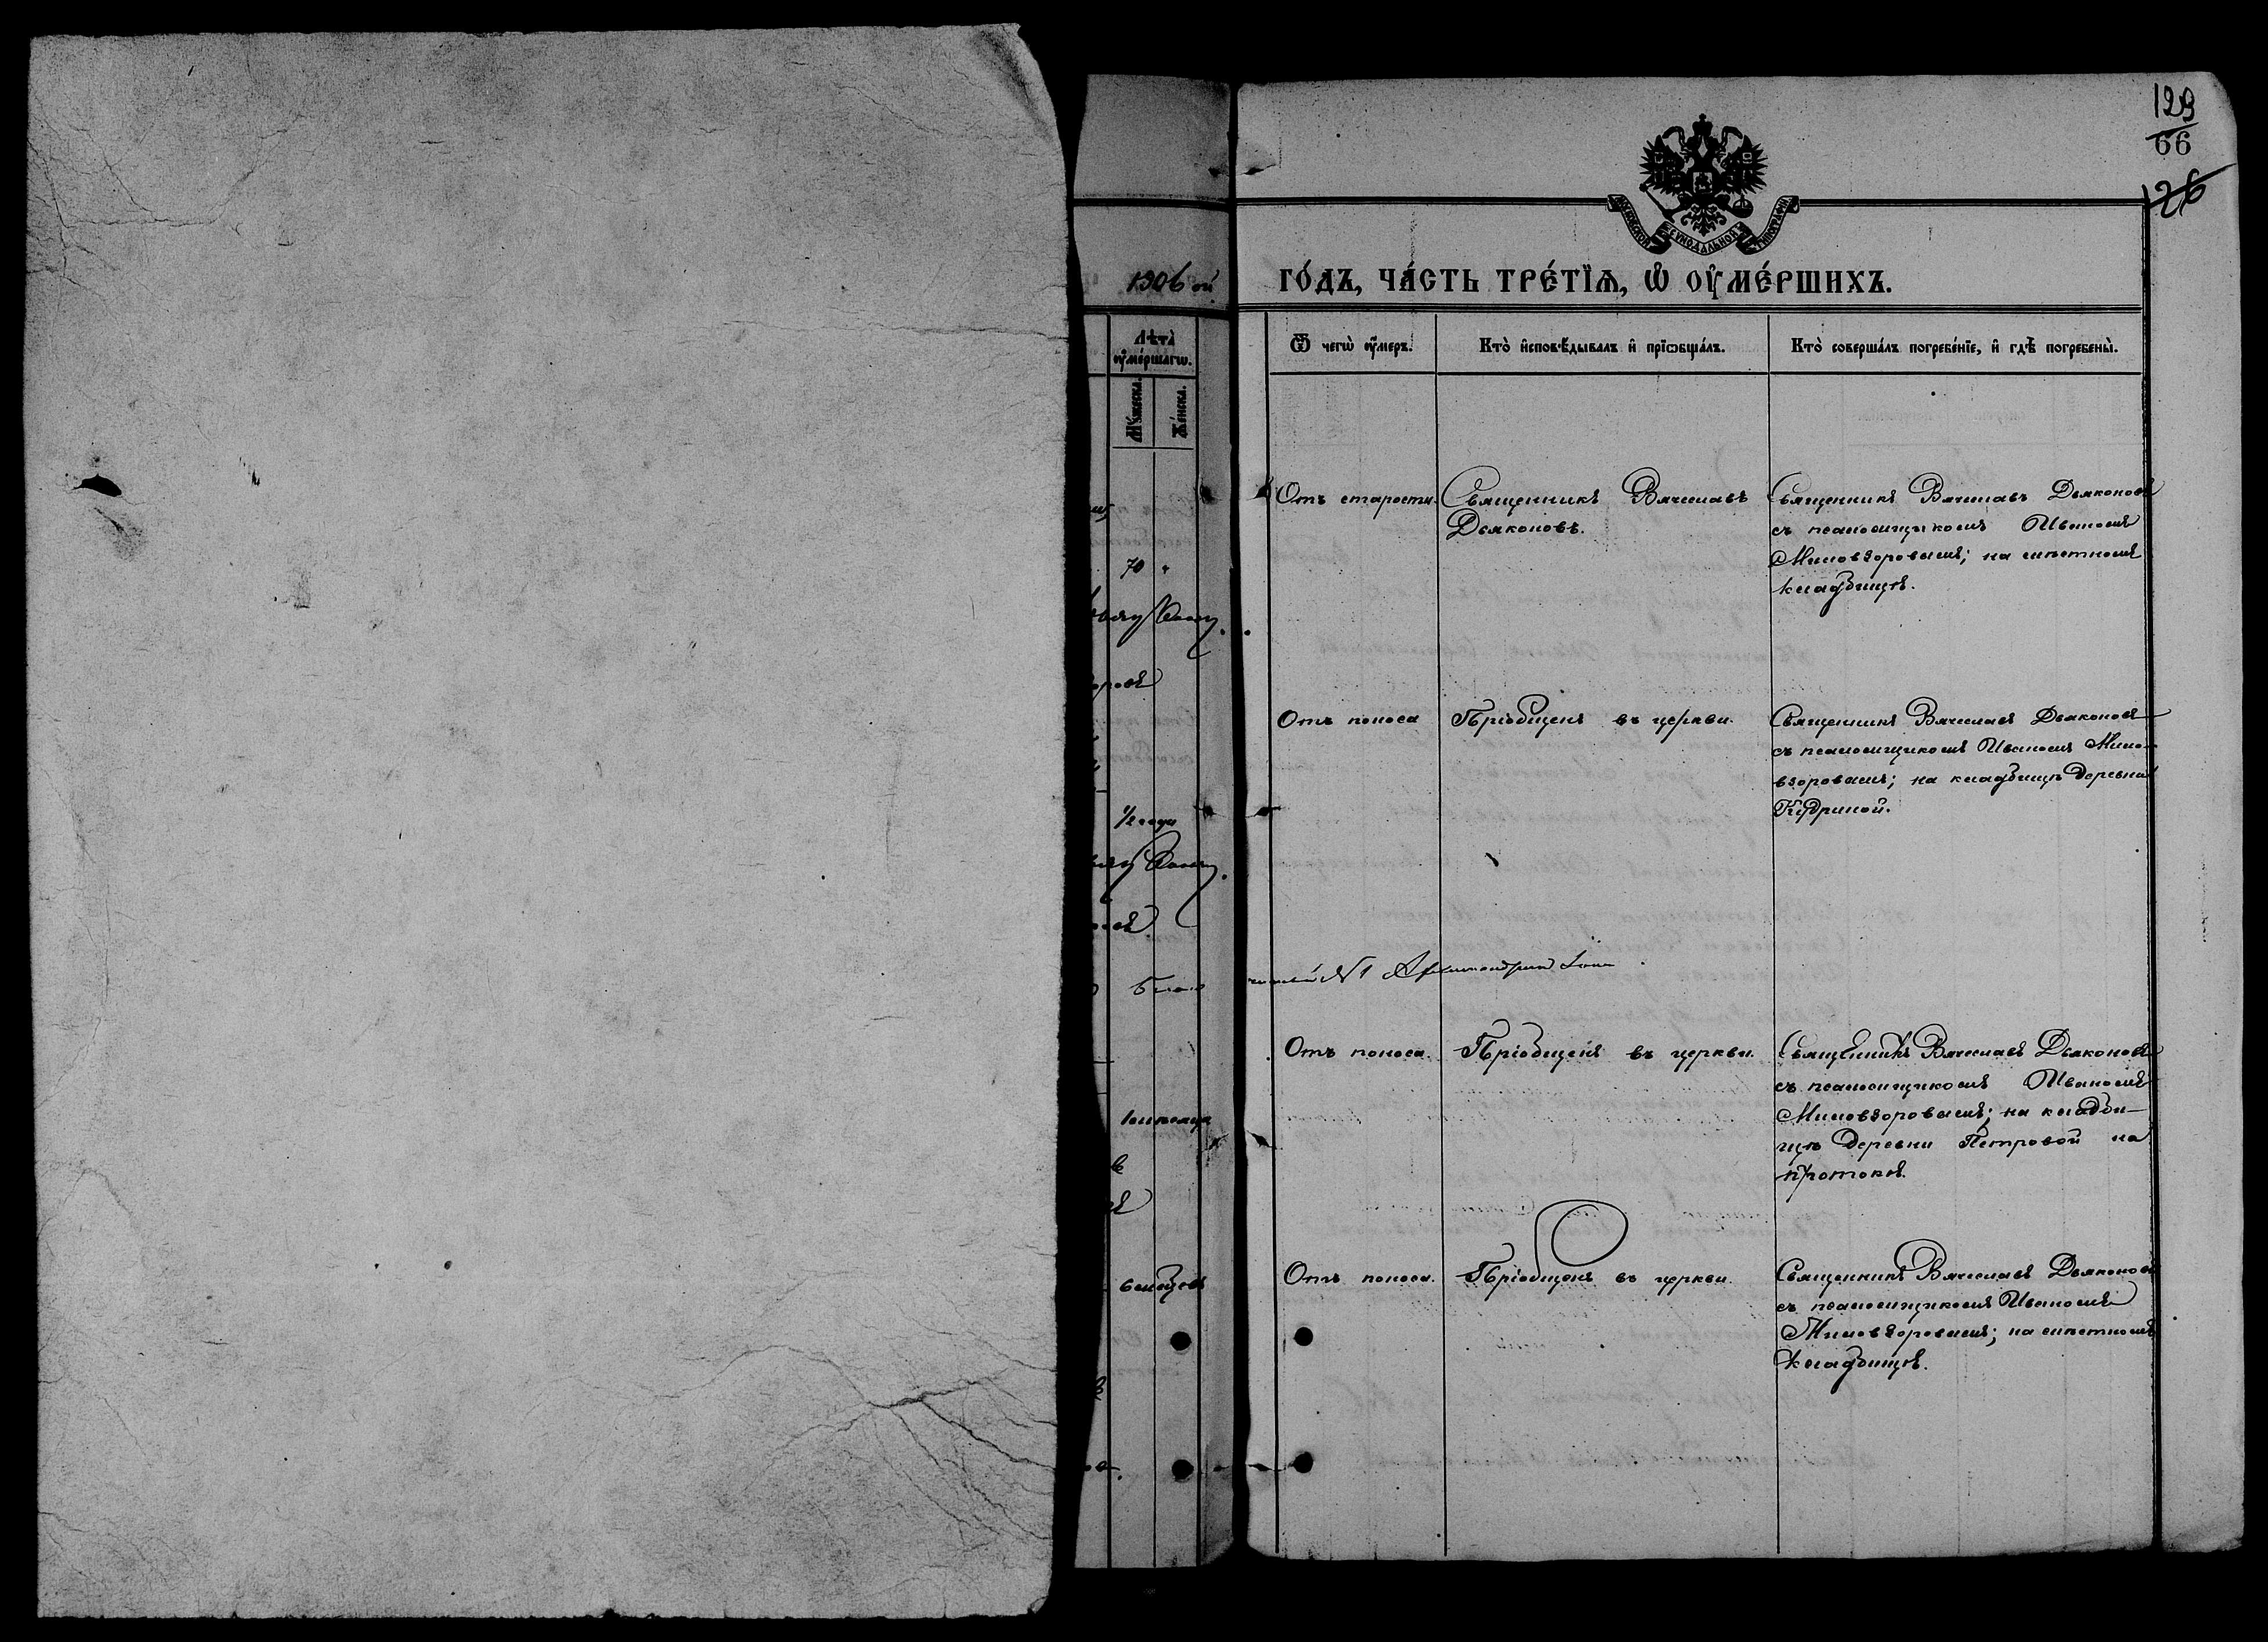 129
66
26
МОСКОВСКОЙ СѴНОДАЛЬНОЙ ТИПОГРАФІИ
1906 ой
го́дъ, ча́сть тре́тїѧ, ѡ҆ ᲂу҆ме́ршихъ.
Лѣта̀ ᲂу҆ме́ршагѡ.
Мꙋ́жеска.
Же́нска.
Ѿ чегѡ̀ ᲂу҆́меръ.
Кто̀ и҆сповѣ́дывалъ и҆ прїѡбща́лъ.
Кто̀ соверша́лъ погребе́нїе, и҆ гдѣ̀ погребены̀.
70 "
Отъ старости.
Священникъ Вячеславъ
Дьяконовъ.
Священникъ Вячеславъ Дьяконовъ
съ псаломщикомъ Иваномъ
Миловзоровымъ; на мѣстномъ
кладбищѣ.
1/2 года
Отъ поноса
Пріобщенъ въ церкви.
Священникъ Вячеславъ Дьяконовъ
съ псаломщикомъ Иваномъ Мило-
взоровымъ; на кладбищѣ деревни
Кудриной.
№ 1 Архимандритъ
Отъ поноса.
Пріобщенъ въ церкви.
Священникъ Вячеславъ Дьяконовъ
съ псаломщикомъ Иваномъ
Миловзоровымъ; на кладби-
щѣ деревни Петровой на
протокѣ.
Отъ поноса.
Пріобщенъ въ церкви.
Священникъ Вячеславъ Дьяконовъ
съ псаломщикомъ Иваномъ
Миловзоровымъ; на мѣстномъ
кладбищѣ.